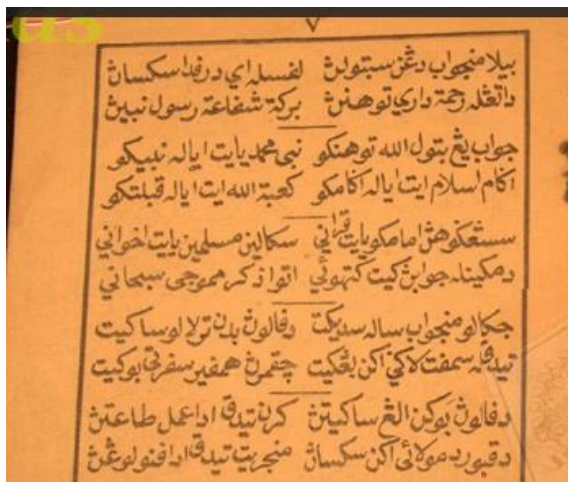 us
٧
بيلا منجواب دڠن سبتولڽ لفسله اي در فد سكسان
داتڠله رحمة داري توهنڽ بركة شفاعة رسول نبين
جواب يڠ بتول الله توهنكو نبي محمد يايت اياله نبيكو
اكام اسلام ايت اياله اكامكو كعبة الله ايت اياله قبلتكو
امامكو يايت قرأني سكالين مسلمين يايت اخواني
دمكينله جوابڽ كيت كتهوئي اتوا ذكر هموجي سبحاني
جكالو منجواب ساله سديكت دفالوڽ بدن ترلالو ساكيت
تيدقله سمفت لاكي اكن بڠكيت همفير سفرتي بوكيت
دفالوڽ بوكن الڠ ساكيتڽ كرن تيدق ادا عمل طاعتڽ
دقبور دمولائي اكن سكسان منجريت تيدق ادا فنولوڠڽ